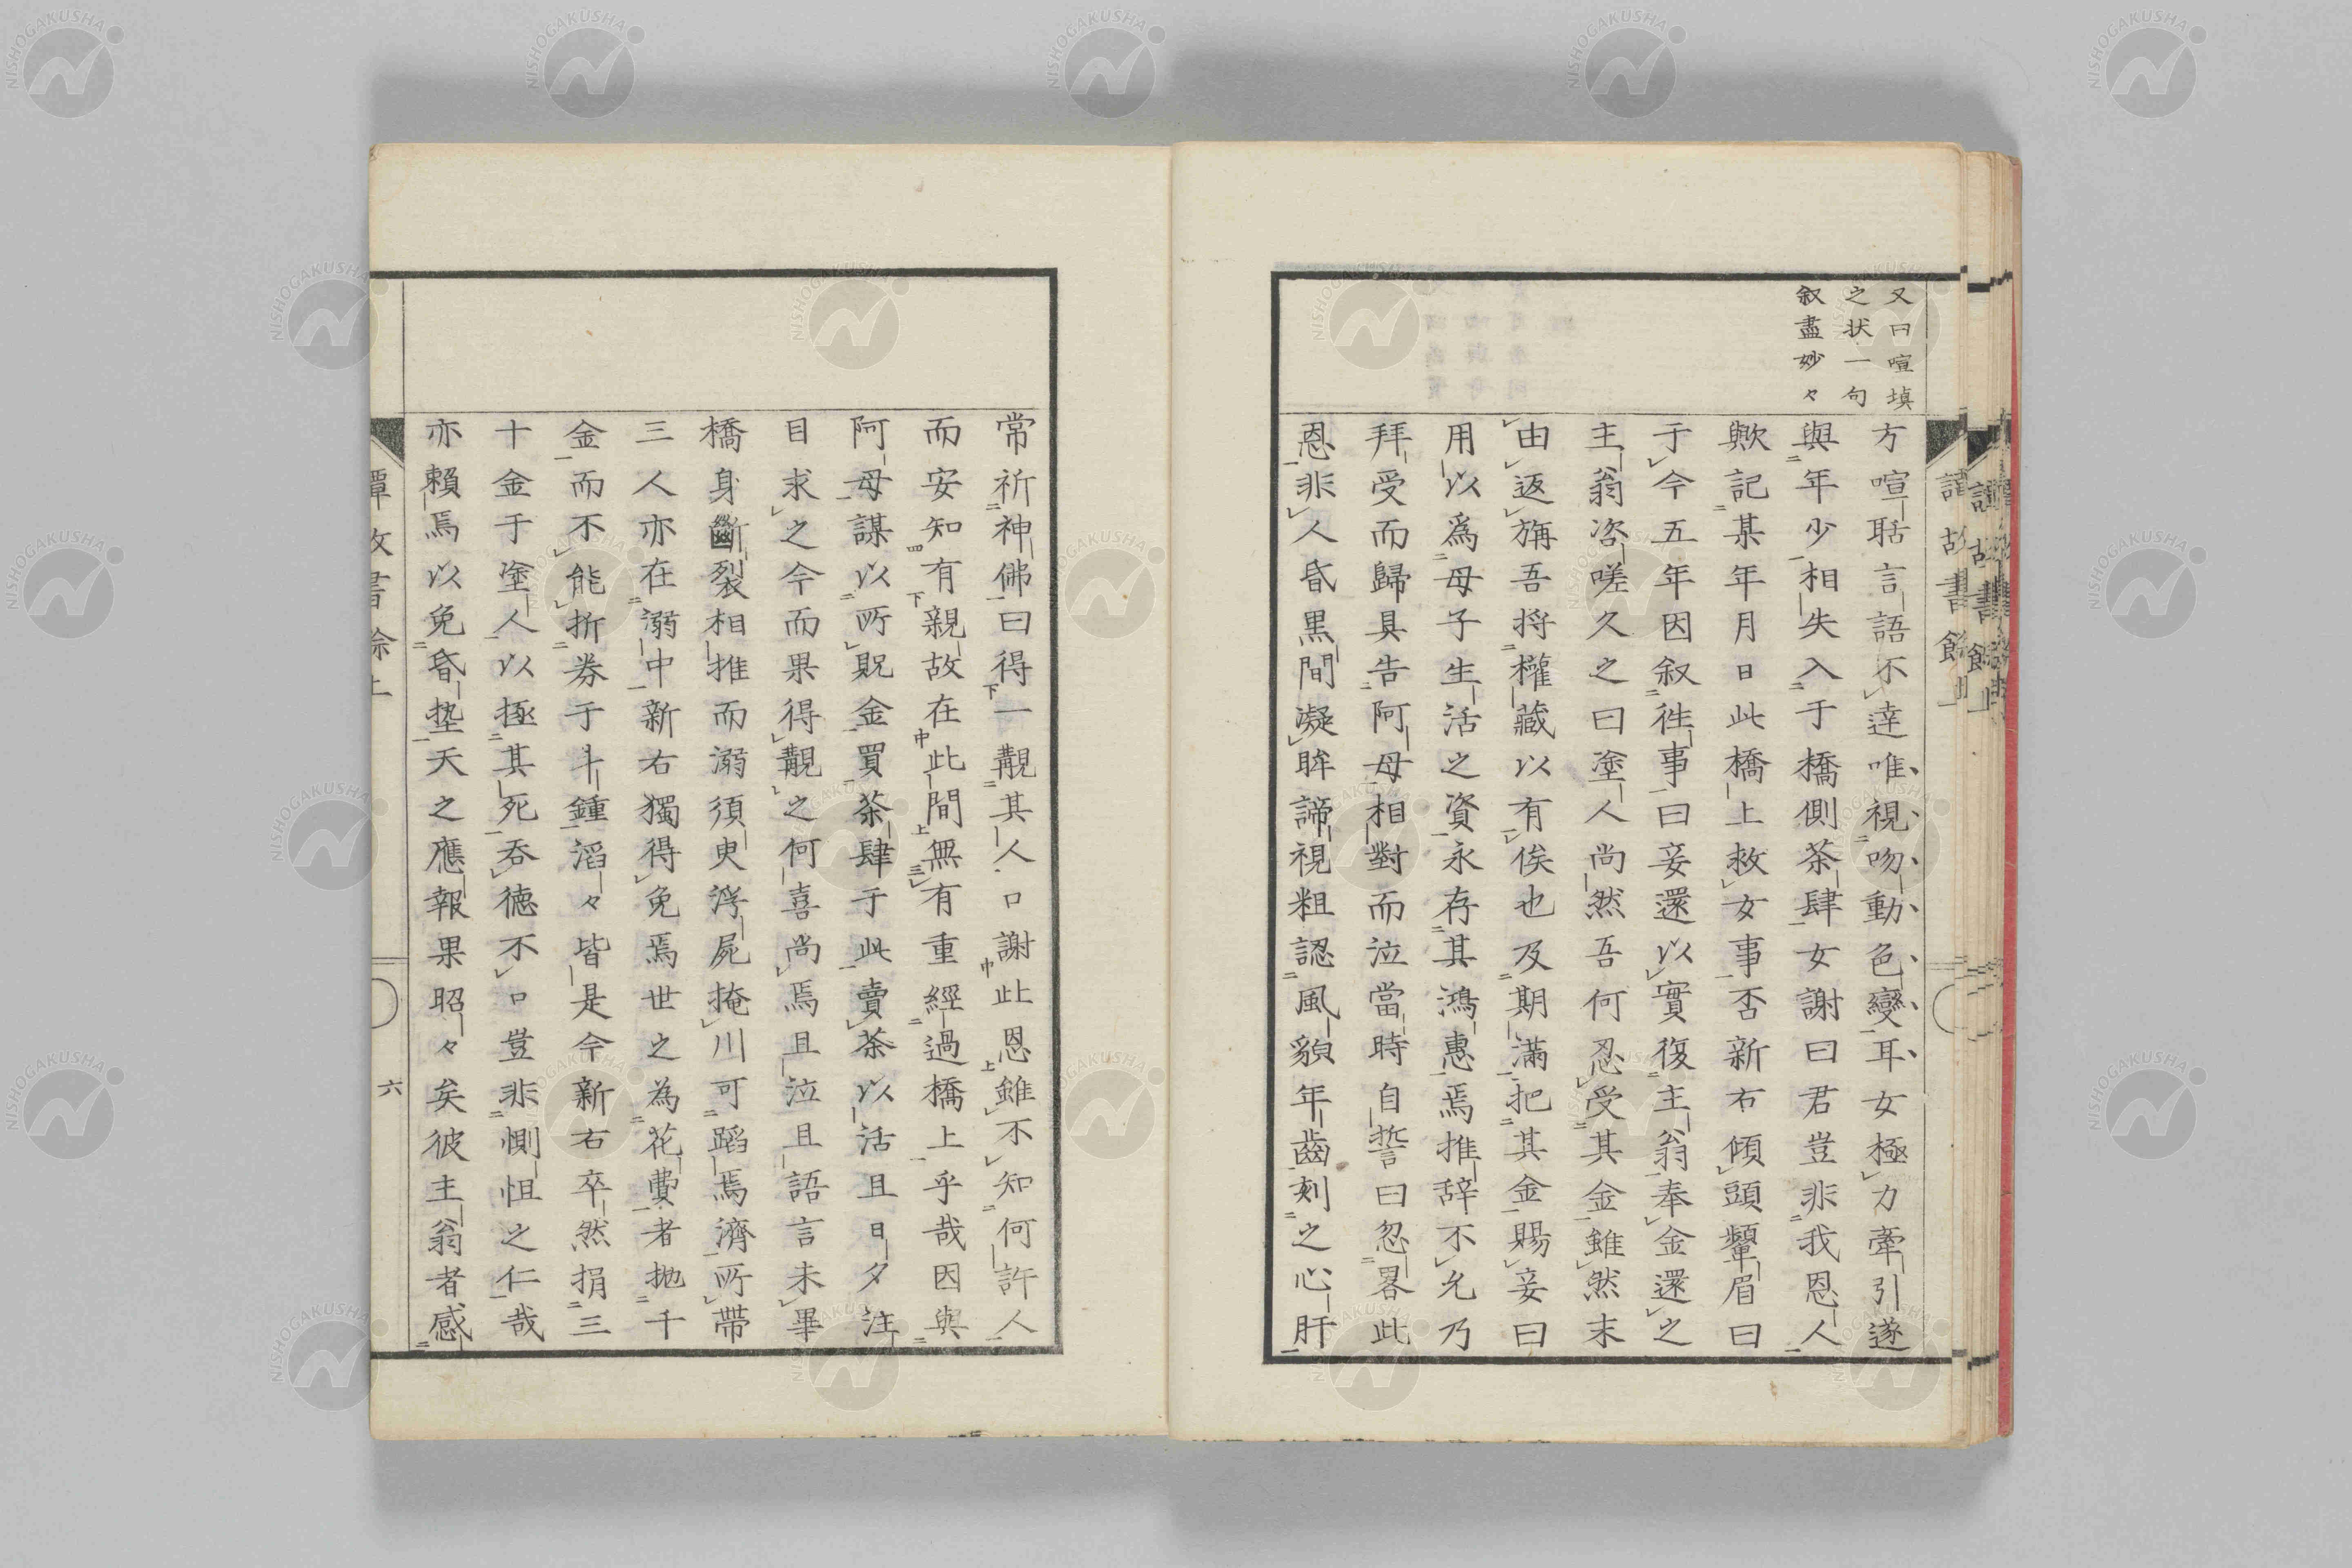 又曰喧填
之状一句
叙盡妙々
方喧聒言語不達唯視吻動色變耳女極力牽引遂
與年少相失入于橋側茶肆女謝曰君豈非我恩人
歟記某年月日此橋上救女事否新右傾頭顰眉曰
于今五年因叙徃事曰妾還以實復主翁奉金還之
主翁咨嗟久之曰塗人尚然吾何忍受其金雖然末
由返旃吾将權藏以有俟也及期滿把其金賜妾曰
用以爲母子生活之資永存其鴻惠焉推辞不允乃
拜受而歸具告阿母相對而泣當時自誓曰忽畧此
恩非人昏黒間凝眸諦視粗認風貌年齒刻之心肝
常祈神佛曰得一覯其人口謝此恩雖不知何許人
而安知有親故在此間無有重經過橋上乎哉因與
阿母謀以所貺金買茶肆于此賣茶以活且日夕注
目求之今而果得覯之何喜尚焉且泣且語言未畢
橋身斷裂相推而溺須臾浮屍掩川可蹈焉濟所帶
三人亦在溺中新右獨得免焉世之為花費者抛千
金而不能折券于斗鍾滔々皆是今新右卒然捐三
十金于塗人以拯其死吞德不口豈非惻怛之仁哉
亦賴焉以免昏墊天之應報果昭々矣彼主翁者感
譚故書餘上
六